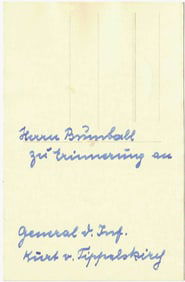 Herrn Bumball
zu Erinnerung an
General d. Inf.
Kurt v. Tippelskirch